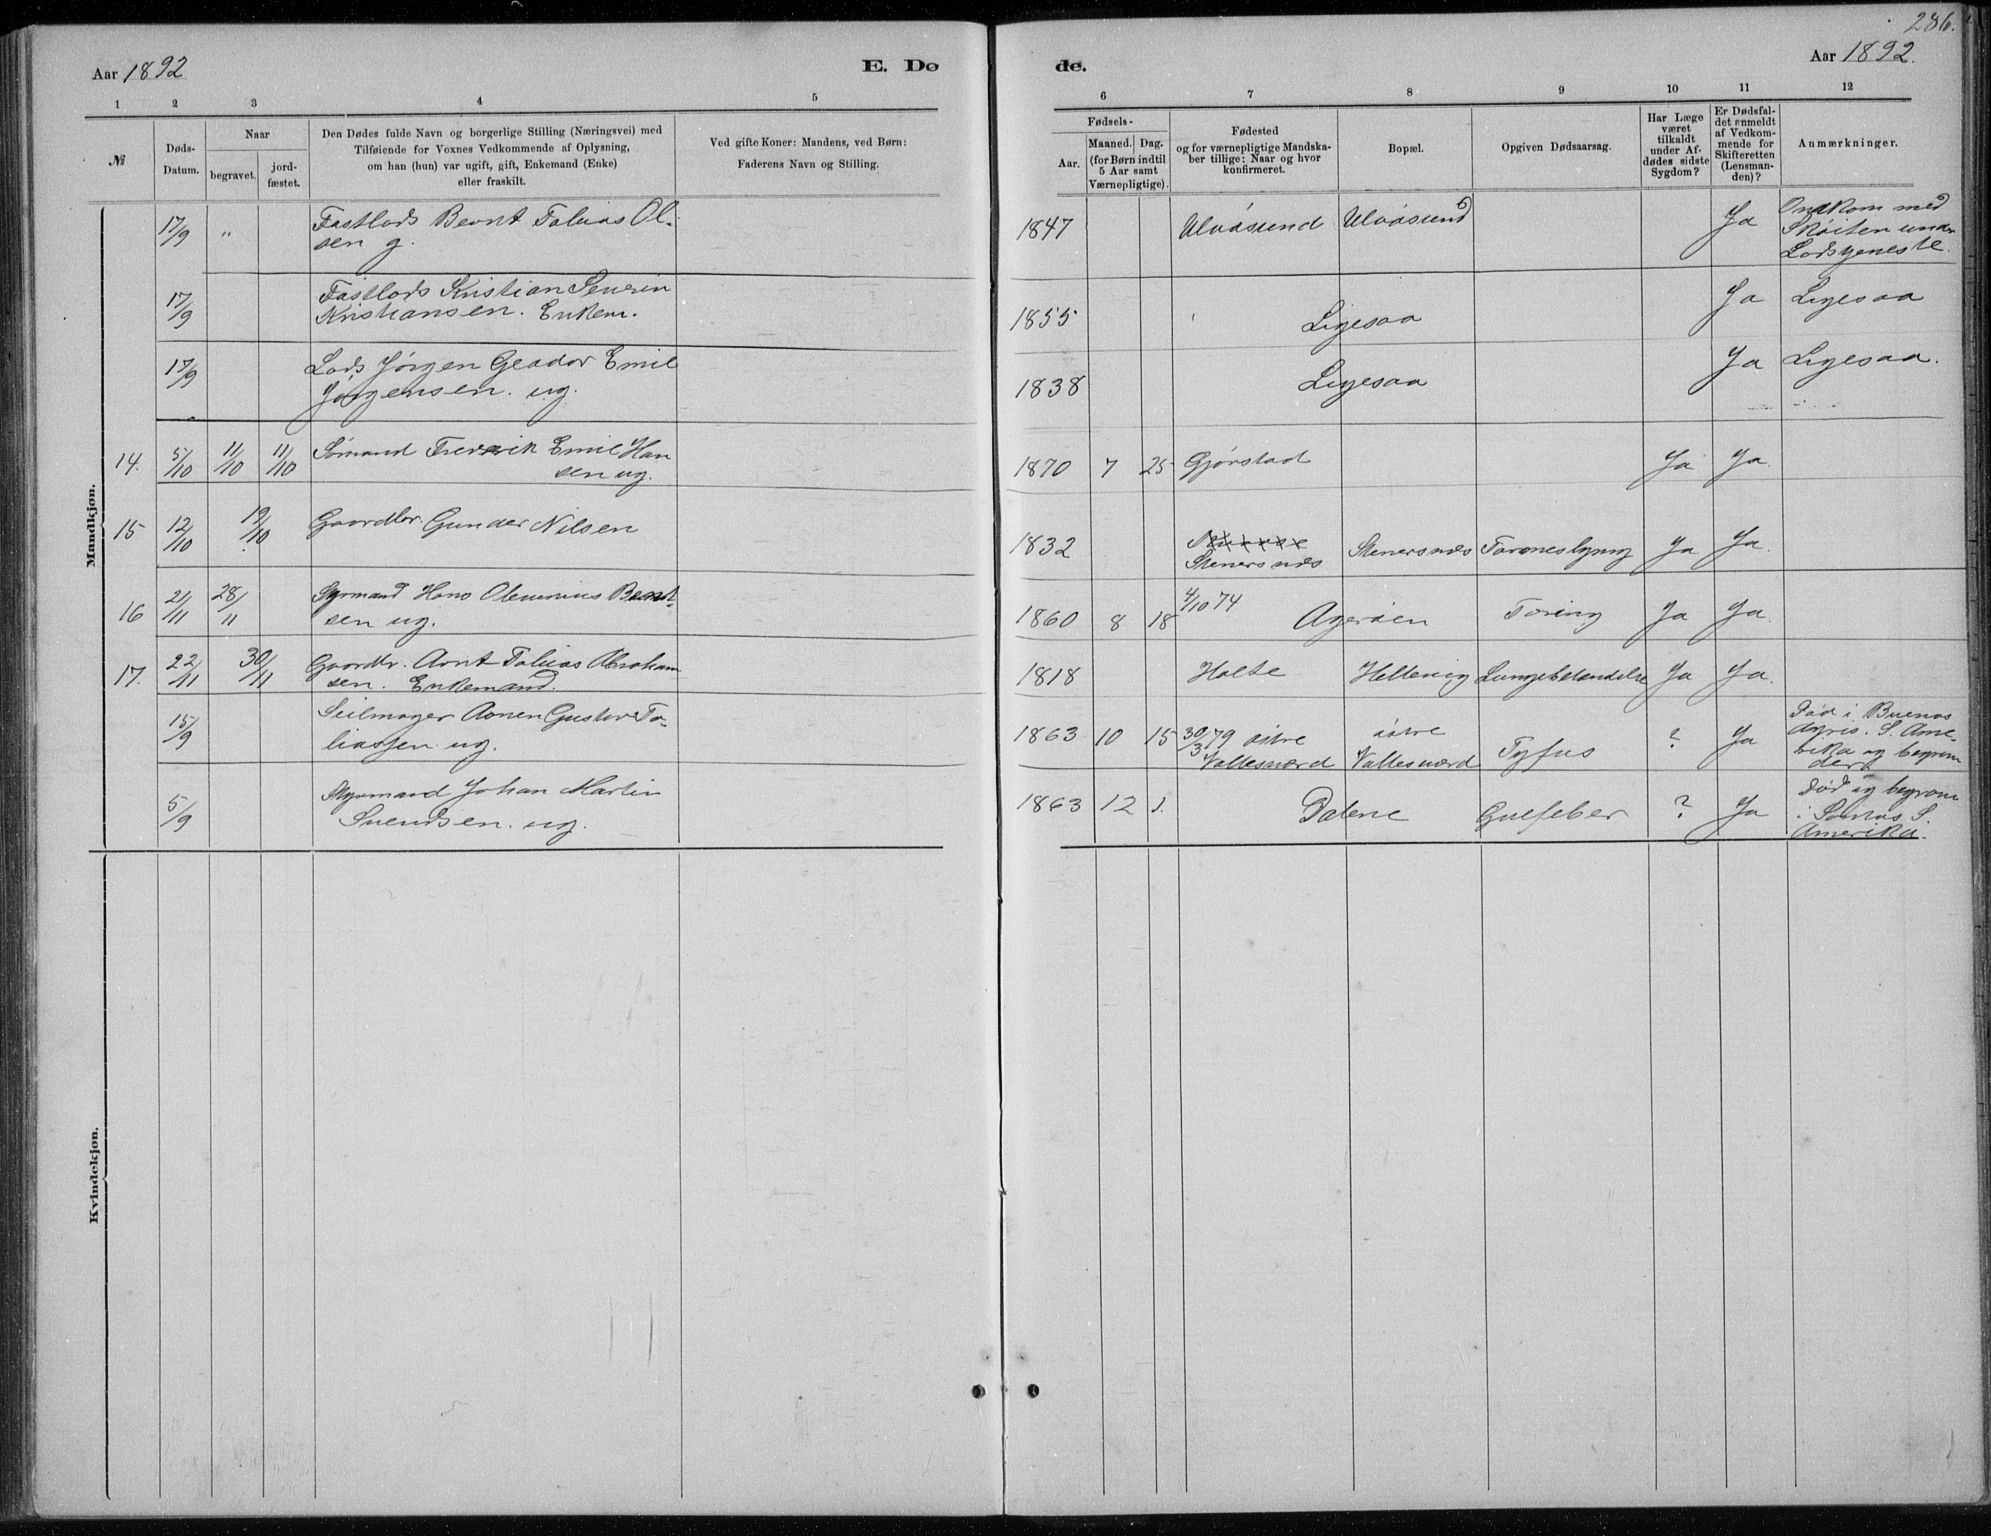 286.
Aar 1892
E. Dø
de.
Aar 1892.
1 2 3 4 5
6 7 8 9 10 11 12
№
Døds-
Datum.
Naar
begravet.
jord-
fæstet.
Den Dødes fulde Navn og borgerlige Stilling (Næringsvei) med
Tilføiende for Voxnes Vedkommende af Oplysning,
om han (hun) var ugift, gift, Enkemand (Enke)
eller fraskilt.
Ved gifte Koner: Mandens, ved Børn:
Faderens Navn og Stilling.
Fødsels-
Aar.
Maaned. Dag.
(for Børn indtil
5 Aar samt
Værnepligtige).
Fødested
og for værnepligtige Mandska-
ber tillige: Naar og hvor
konfirmeret.
Bopæl.
Opgiven Dødsaarsag.
Har Læge
været
tilkaldt
under Af-
dødes sidste
Sygdom?
Er Dødsfal-
det anmeldt
af Vedkom-
mende for
Skifteretten
(Lensman-
den)?
Anmærkninger.
Mandkjøn.
17/9 "
Fastlods Bernt Tobias Ol-
sen g.
1847 Ulvøsund Ulvøsund Ja
Omkom med
Skøiten under
Lodstjeneste.
17/9
Fastlods Kristian Severin
Kristiansen. Enkem.
1855 Ligesaa Ja Ligesaa
17/9
Lods Jørgen Emil
Jørgensen. ug.
1838 Ligesaa Ja Ligesaa.
14. 5/10 11/10 11/10
Sømand Fredrik Emil Han
sen ug.
1870 7 25 Gjørstad Ja Ja.
15 12/10 19/10
Gaardbr. Gunder Nilsen
1832
Stenersnæs Stenersnæs Ja Ja.
16 21/11 28/11
Styrmand Hans Olenius Bernt-
sen ug.
1860 8 18 4/10 74 Agerøen Tæring Ja Ja.
17. 22/11 30/11
Gaardbr. Arnt Tobias Abraham
sen. Enkemand.
1818 Holte Hellevig Lungebetændelse Ja Ja.
15/9
Seilmager Gustav To-
biassen ug.
1863 10 15 30/3 79 østre
Vallesværd
østre
Vallesværd Tyfus ? Ja
Død i Buenos
Ayris. S. Ame-
rika og begra
der
5/9
Styrmand Johan Martin
Svendsen. ug.
1863 12 1. Dalene Gulfeber ? Ja
Død og begrav
i Santos S.
Amerika.
Kvindekjøn.